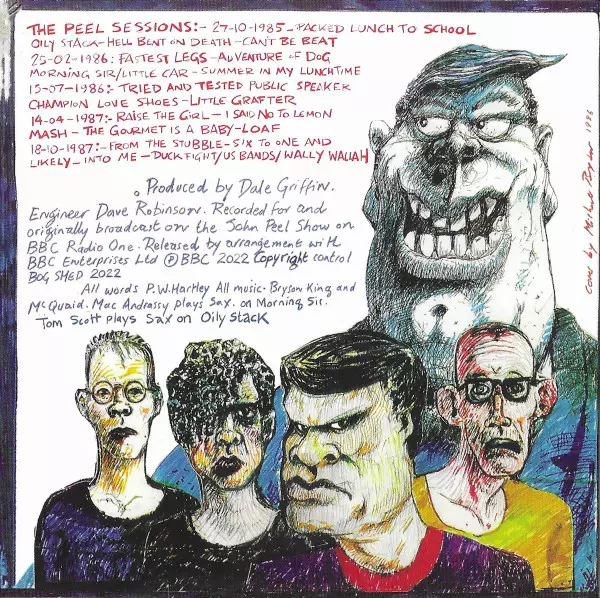 THE PEEL SESSIONS:- 27-10-1985_ PACKED LUNCH TO SCHOOL
OILY STACK-HELL BENT ON DEATH-CAN'T BE BEAT
25-02-1986: FASTEST LEGS-ADVENTURE OF DOG
MORNING SIR/LITTLE CAR-SUMMER IN MY LUNCHTIME
15-07-1986: TRIED AND TESTED PUBLIC SPEAKER
CHAMPION LOVE SHOES-LITTLE GRAFTER
14-04-1987:-RAISE THE GIRL-I SAID NO TO LEMON
MASH - THE GOURMET IS A BABY-LOAF
18-10-1987:-FROM THE STUBBLE-SIX TO ONE AND
LIKELY_ INTO ME-DUCK FIGHT/US BANDS/WALLY WALLAH
Produced by Dale Griffin.
Engineer Dave Robinson. Recorded for and
originally broadcast on the John Peel Show on
BBC Radio One. Released by arrangement with
BBC Enterprises Ltd ℗ BBC 2022 Copyright control
BOG SHED 2022
All words P.W. Hartley All music- Bryson King and
McQuaid. Mac Andrassy plays Sax. on Morning Sir.
Tom Scott plays Sax on Oily Stack
Cover by Michael Bryson 1986